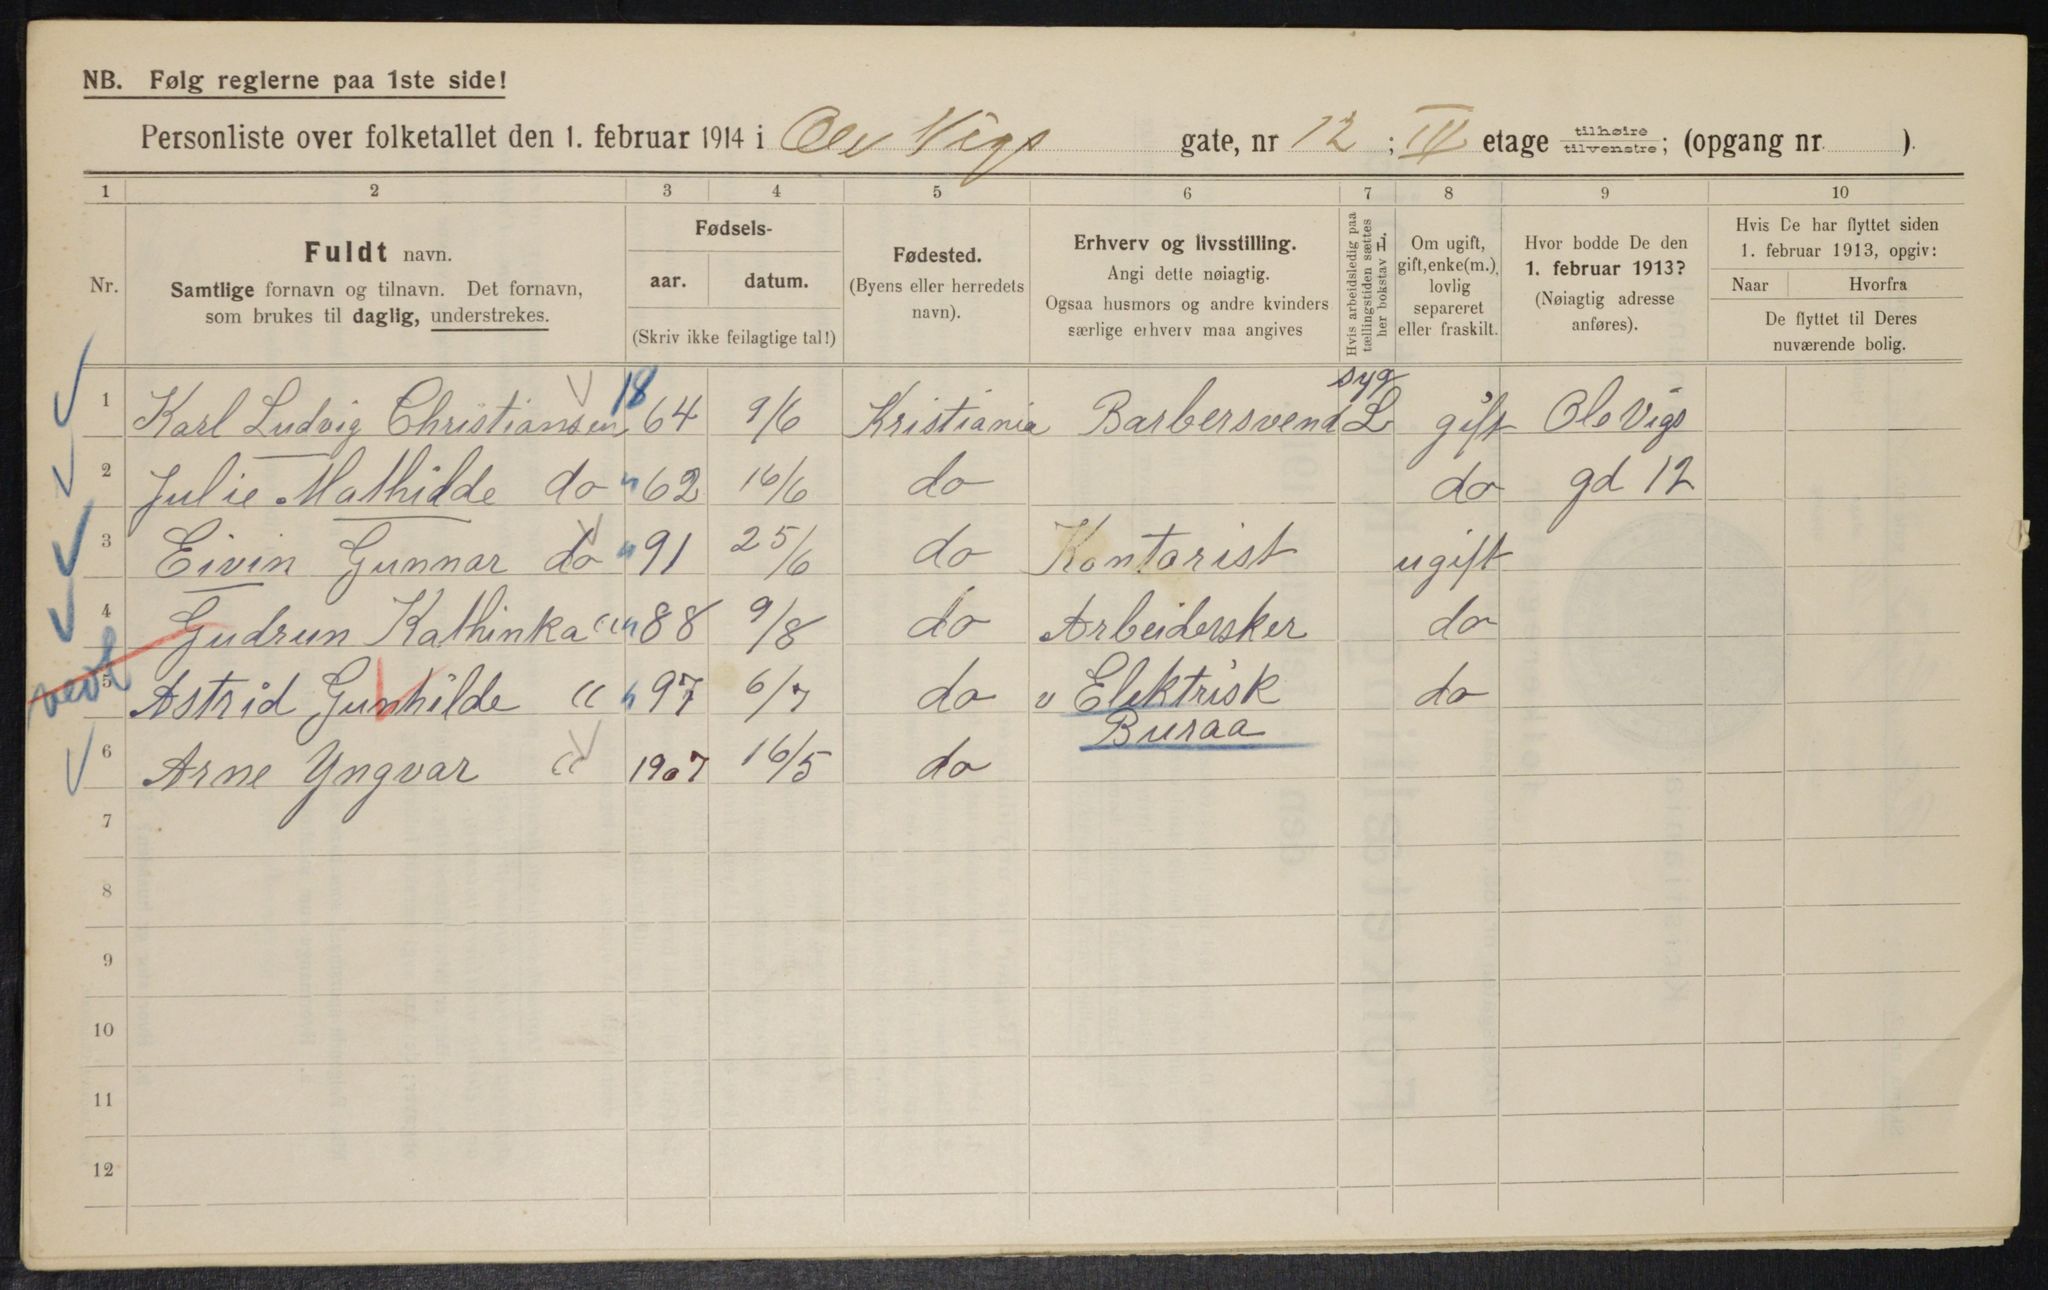 NB. Følg reglerne paa 1ste side!
Personliste over folketallet den 1. februar 1914 i Ole Vigs gate, nr 12 ; IV etage tilhøire tilvenstre; (opgang nr. ).
1 2 3 4 5 6 7 8 9 10
Nr.
Fuldt navn.
Samtlige fornavn og tilnavn. Det fornavn,
som brukes til daglig, understrekes.
Fødsels-
aar. datum.
(Skriv ikke feilagtige tal!)
Fødested.
(Byens eller herredets
navn).
Erhverv og livsstilling.
Angi dette nøiagtig.
Ogsaa husmors og andre kvinders
særlige erhverv maa angives
Hvis arbeidsledig paa
tællingstiden sættes
her bokstav L.
Om ugift,
gift, enke(m.),
lovlig
separeret
eller fraskilt.
Hvor bodde De den
1. februar 1913?
(Nøiagtig adresse
anføres).
Hvis De har flyttet siden
1. februar 1913, opgiv:
Naar Hvorfra
De flyttet til Deres
nuværende bolig.
syg
1 Karl Ludvig Christiansen 18 64 9/6 Kristiania Barbersvend L gift Ole Vigs
2 Julie Mathilde do " 62 16/6 do do gd 12
3 Eivin Gunnar do " 91 25/6 do Kontorist ugift
4 Gudrun Kathinka " " 88 9/8 do Arbeiderske do
5 Astrid Gunhilde " " 97 6/7 do " Elektrisk do
Buraa
6 Arne Yngvar " 1907 16/5 do
7
8
9
10
11
12